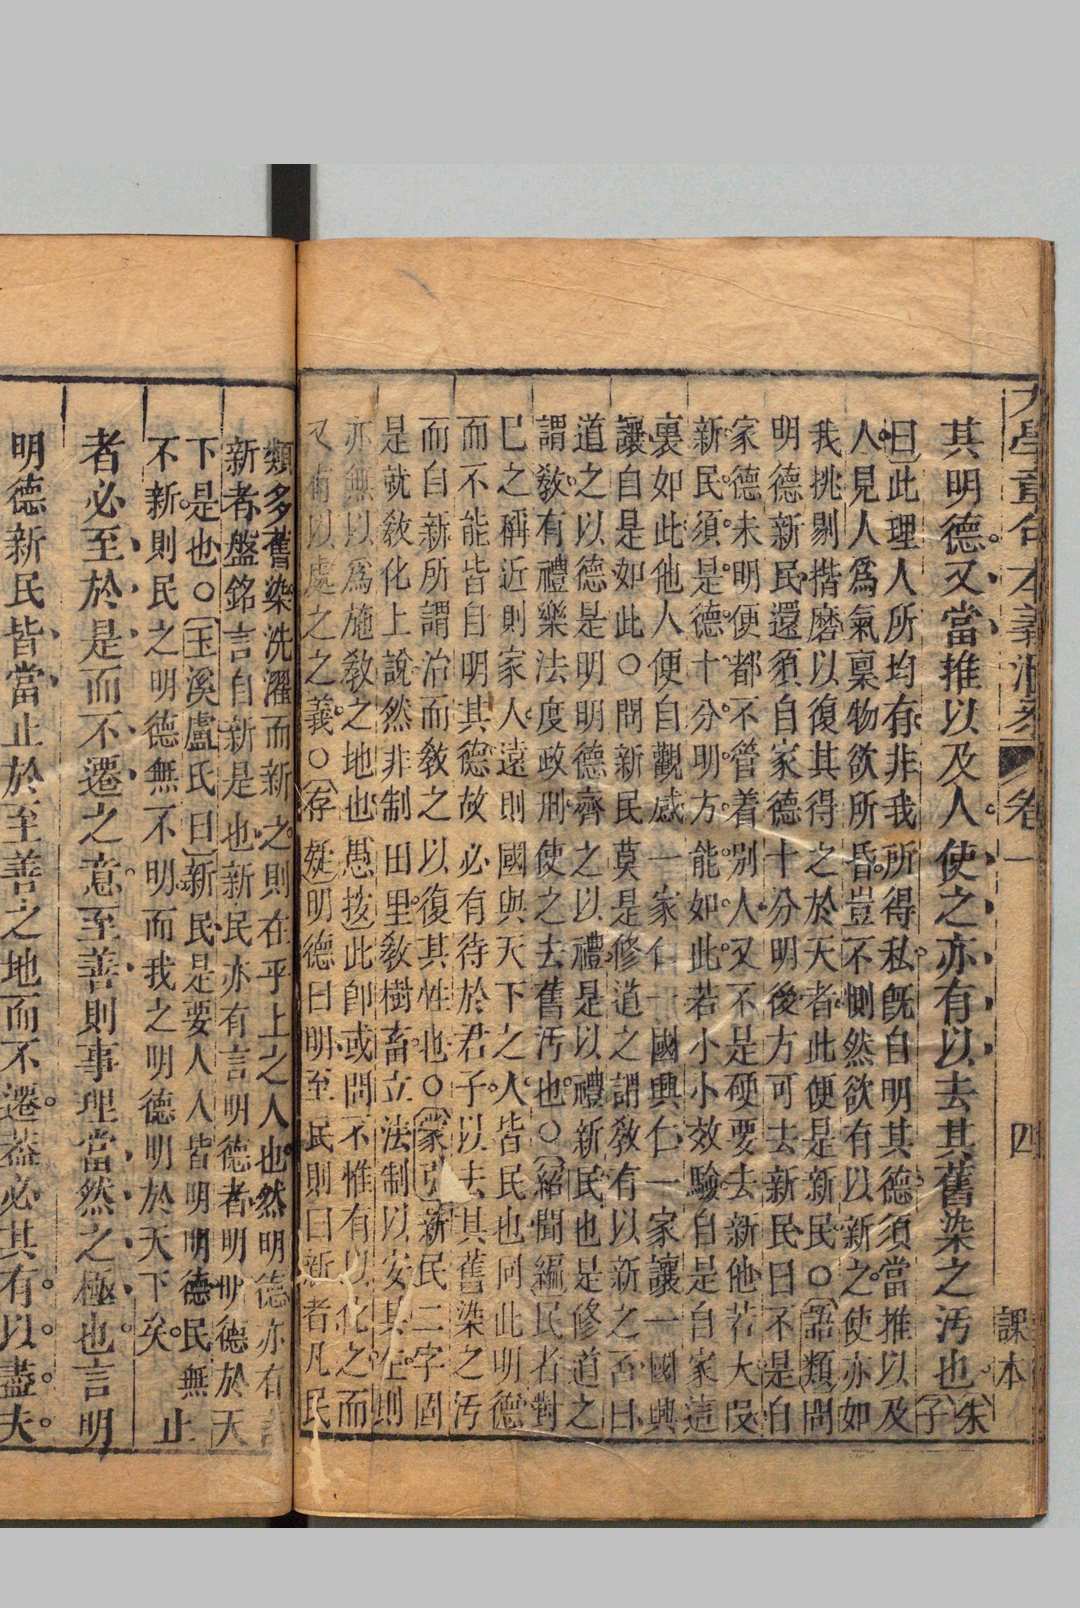 大學章句本義匯參 卷一 四 課本
其明德又當推以及人使之亦有以去其舊染之汚也朱子
曰此理人所均有非我所得私旣自明其德須當推以及
人見人爲氣稟物欲所昏豈不惻然欲有以新之使亦如
我挑剔揩磨以復其得之於天者此便是新民○語類問
明德新民還須自家德十分明後方可去新民曰不是自
家德未明便都不管着別人又不是硬要去新他若大叚
新民須是德十分明方能如此若小小效驗自是自家這
裏如此他人便自觀感一家仁一國興仁一家讓一國興
讓自是如此○問新民莫是修道之謂敎有以新之否曰
道之以德是明明德齊之以禮是以禮新民也是修道之
謂敎有禮樂法度政刑使之去舊汚也○紹聞編民者對
已之稱近則家人遠則國與天下之人皆民也同此明德
而不能皆自明其德故必有待於君子以去其舊染之汚
而自新所謂治而敎之以復其性也○蒙引新民二字固
是就敎化上說然非制田里敎樹畜立法制以安其生則
亦無以爲施敎之地也愚按此卽或問不惟有以化之而
又有以處之之義○存疑明德曰明至民則曰新者凡民
類多舊染洗濯而新之則在乎上之人也然明德亦有
新者盤銘言自新是也新民亦有言明德者明明德於天
下是也○玉溪盧氏曰新民是要人人皆明明德民無
不新則民之明德無不明而我之明德明於天下矣 止
者必至於是而不遷之意至善則事理當然之極也言明
明德新民皆當止於至善之地而不遷蓋必其有以盡夫